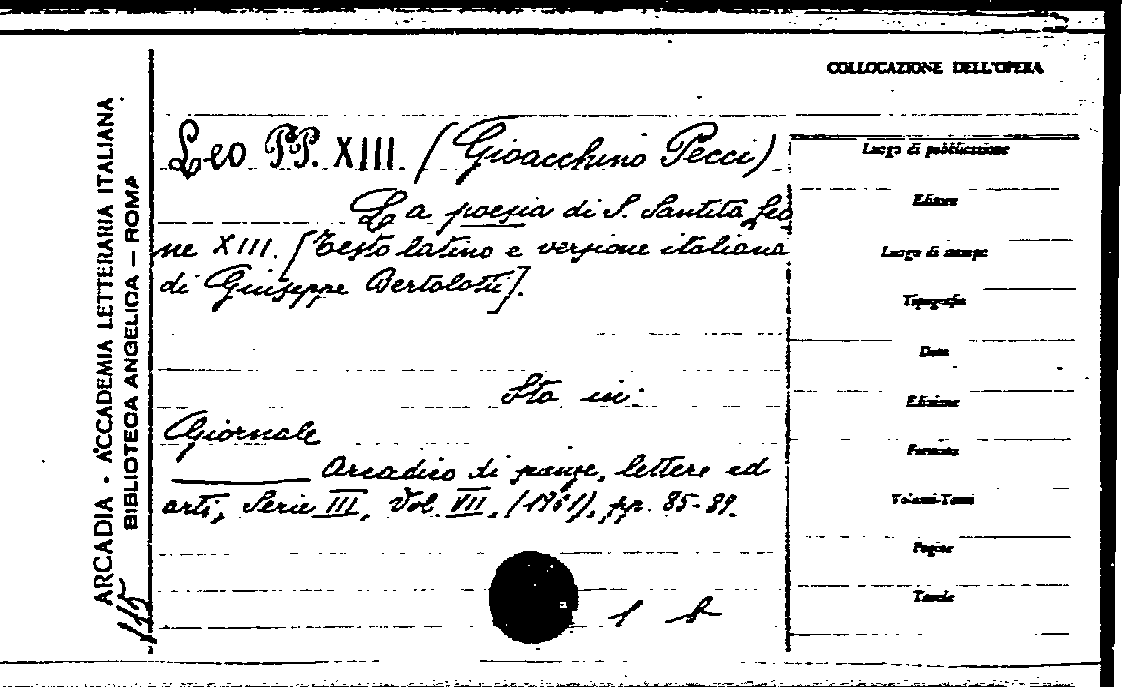 COLLOCAZIONE DELL'OPERA
ARCADIA - ACCADEMIA LETTERARIA ITALIANA
BIBLIOTECA ANGELICA — ROMA
115
Leo PP. XIII. (Gioacchino Pecci)
La poesia di S. Santità Leo
ne XIII. [Testo latino e versione italiana
di Giuseppe Bertolotti].
Sta in:
Giornale
Arcadico di scienze, lettere ed
arti, Serie III, Vol. VII, (1901), pp. 85-89.
1
Luogo di pubblicazione
Editore
Luogo di stampa
Tipografia
Data
Edizione
Formato
Volumi-Tomi
Pagine
Tavole